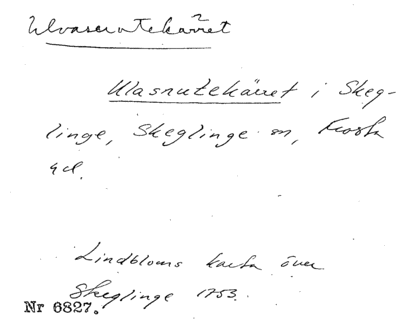 Ulvasnutekärret
Ulasnutekärret i Skeg-
linge, Skeglinge sn, Frosta
hd.
Lindbloms karta över
Skeglinge 1753.
Nr 6827.